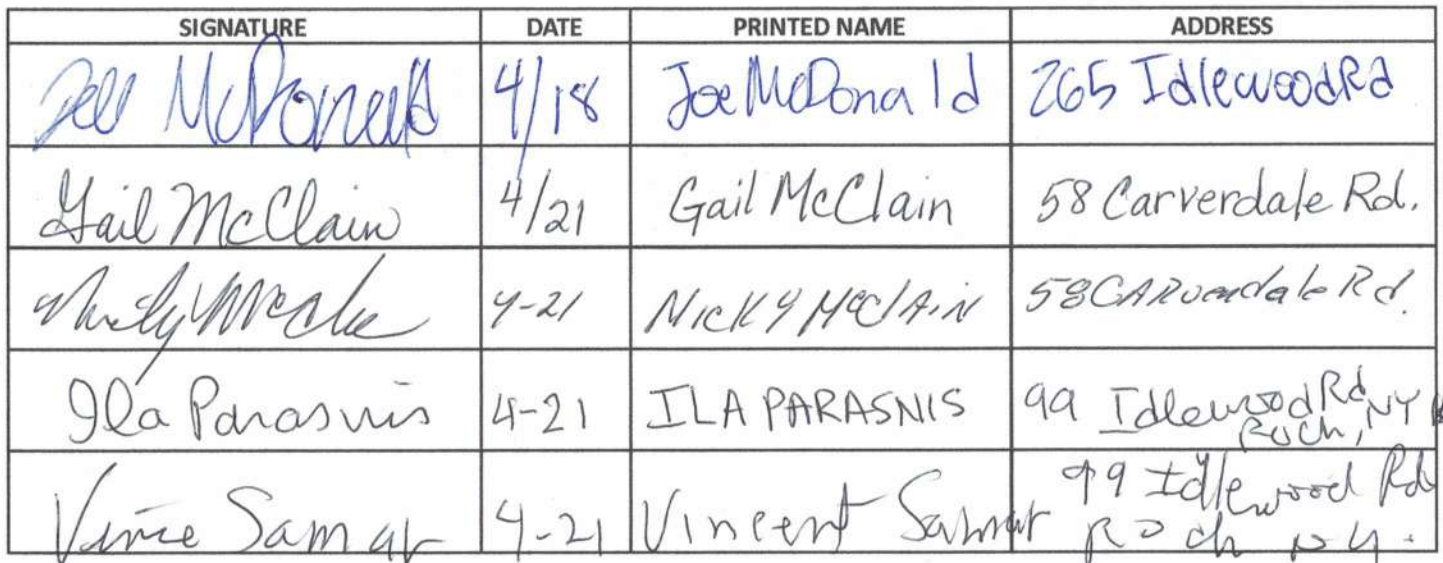 SIGNATURE DATE PRINTED NAME ADDRESS
Joe McDonald 4/18 Joe McDonald 265 Idlewood Rd
Gail McClain 4/21 Gail McClain 58 Carverdale Rd.
4-21 Nicky McClain 58 Carverdale Rd.
Ila Parasnis 4-21 ILA PARASNIS 99 Idlewood Rd
Roch, NY
Vince Samar 4-21 Vincent Samar 99 Idlewood Rd
Roch NY.